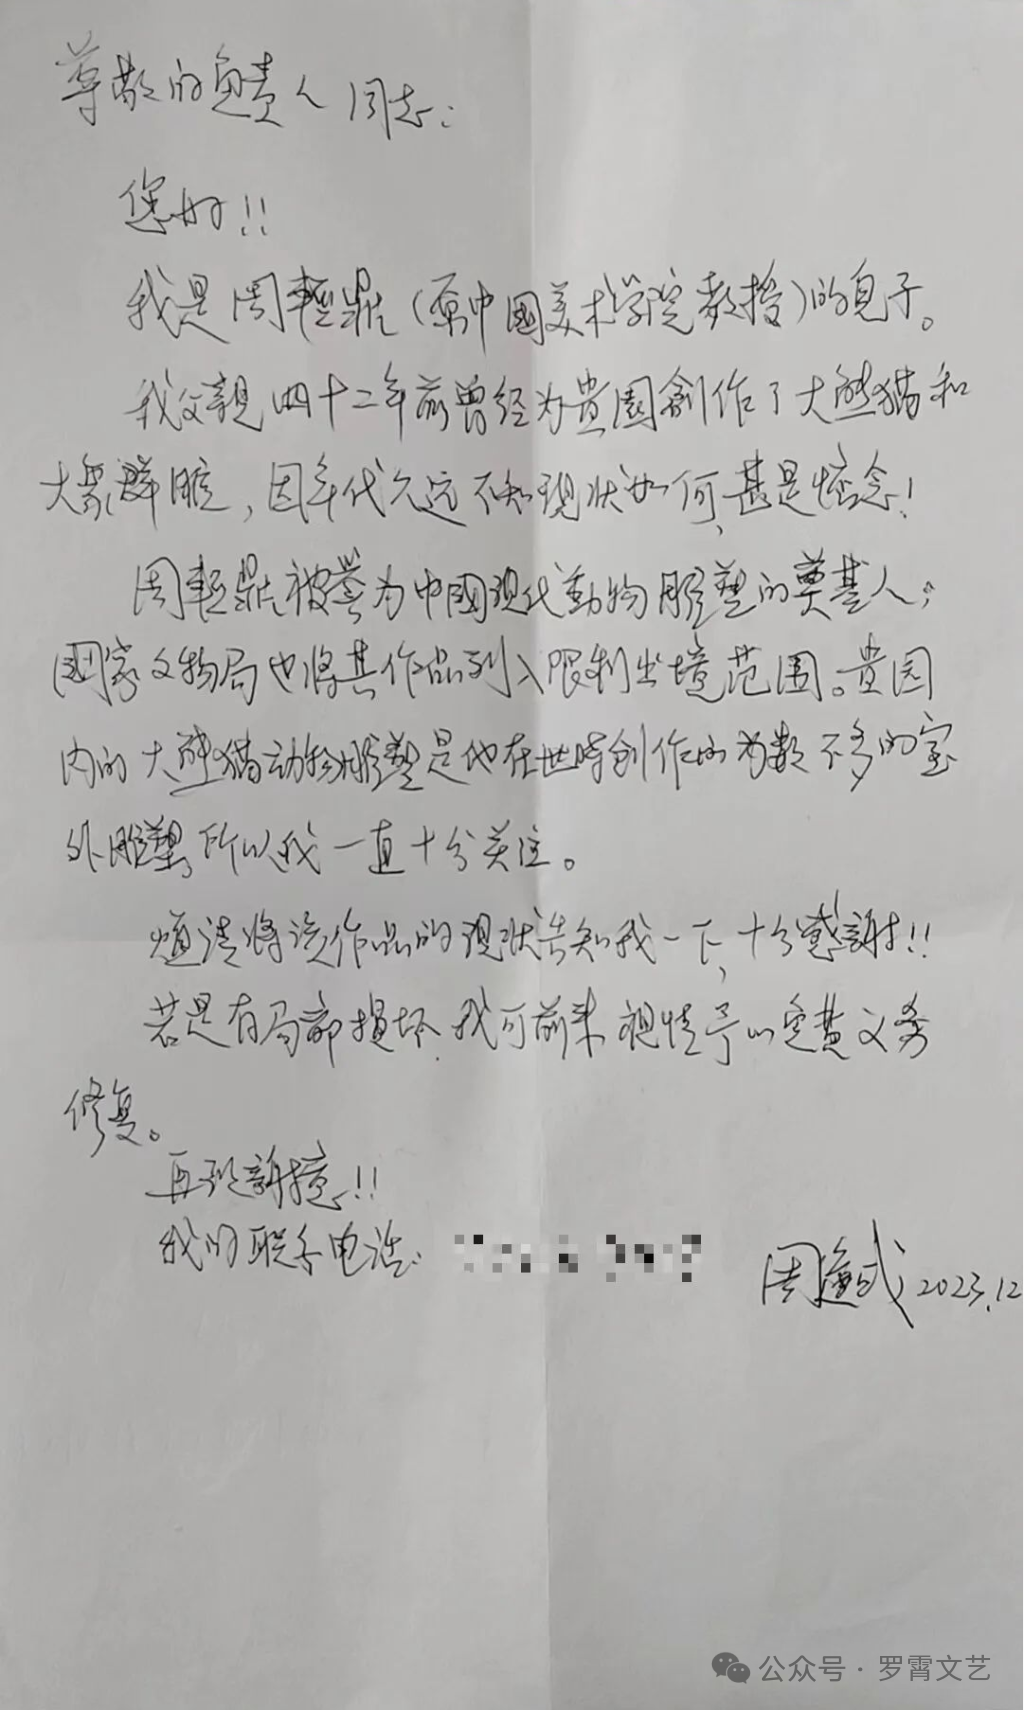 尊敬的负责人同志:
您好!!
我是周轻鼎(原中国美术学院教授)的儿子。
我父亲四十二年前曾经为贵園創作了大熊猫和
大象群雕,因年代久远不知现状如何,甚是惦念!
周轻鼎被誉为中國现代動物雕塑的奠基人;
國家文物局也将其作品列入限制出境范围。贵园
内的大熊猫动物雕塑是他在世時創作的为数不多的室
外雕塑,所以我一直十分关注。
烦请将该作品的现状告知我一下,十分感謝!!
若是有局部損坏,我可前来视情予以免費义务
修复。
再致謝意!!
我的联系电话:
周 2023.12
公众号·罗霄文艺